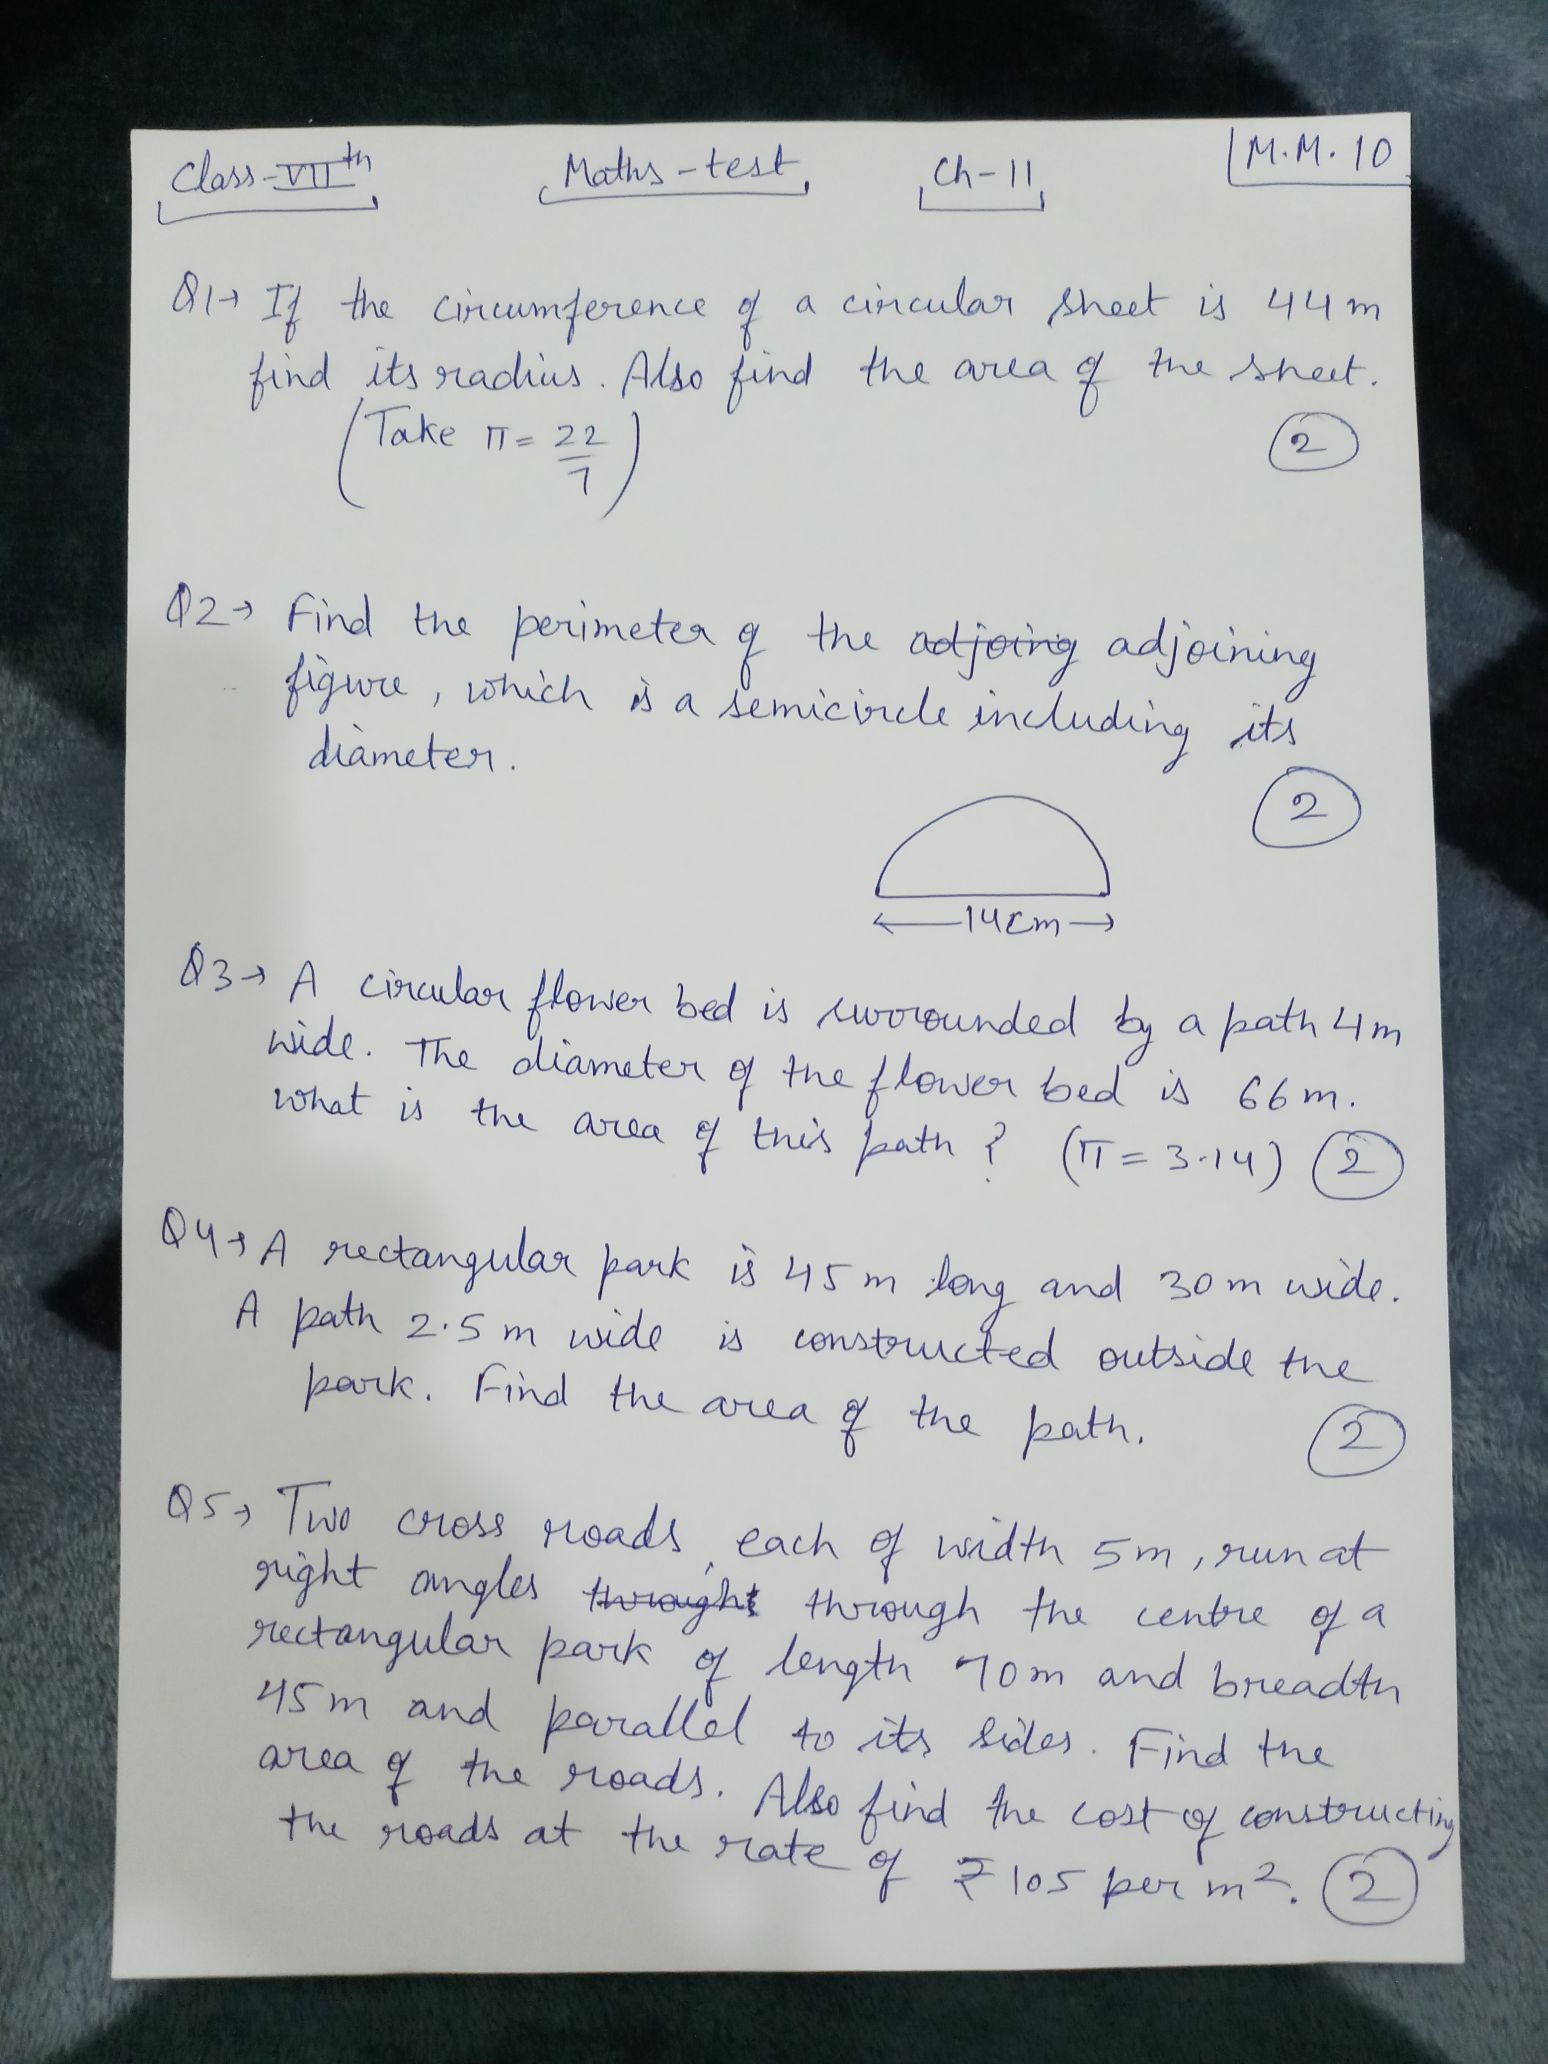 Class-VIIth Maths-test Ch-11 M.M. 10
Q1→ If the circumference of a circular sheet is 44m
find its radius. Also find the area of the sheet.
(Take π = 22/7) 2
Q2→ Find the perimeter of the adjoing adjoining
figure, which is a semicircle including its
diameter.
2
14cm
Q3→ A circular flower bed is surrounded by a path 4m
wide. The diameter of the flower bed is 66m.
what is the area of this path? (π = 3.14) 2
Q4→ A rectangular park is 45m long and 30m wide.
A path 2.5m wide is constructed outside the
park. Find the area of the path. 2
Q5→ Two cross roads, each of width 5m, run at
right angles throught through the centre of a
rectangular park of length 70m and breadth
45m and parallel to its sides. Find the
area of the roads. Also find the cost of constructing
the roads at the rate of ₹105 per m². 2